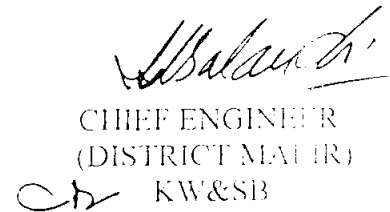 CHIEF ENGINEER
(DISTRICT MALIR)
KW&SB